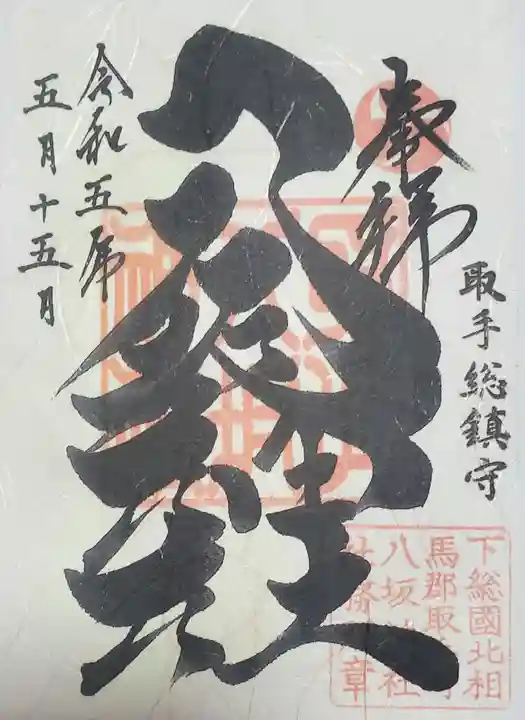 奉拝
取手総鎮守
八坂神社
令和五年
五月十五日
下総國北相
馬郡取手町
八坂神社
社務所章